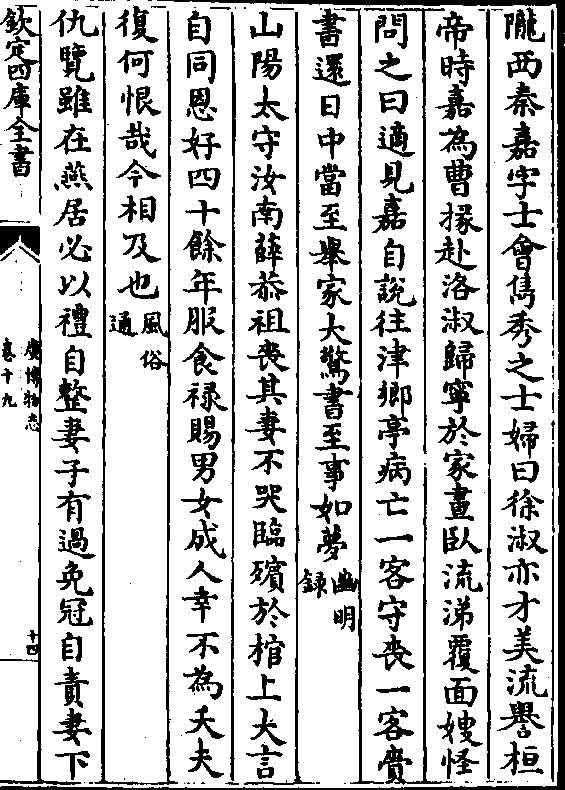 隴西秦嘉字士會儁秀之士婦曰徐淑亦才美流譽桓
帝時嘉為曹掾赴洛淑歸寧於家晝臥流涕覆面嫂怪
問之曰適見嘉自說往津鄉亭病亡一客守喪一客賫
書還日中當至舉家大驚書至事如夢幽明錄
山陽太守汝南薛恭祖喪其妻不哭臨殯於棺上大言
自同恩好四十餘年服食禄賜男女成人幸不為夭夫
復何恨哉今相及也風俗通
仇覽雖在燕居必以禮自整妻子有過免冠自責妻下
欽定四庫全書
廣博物志
卷十九
十四